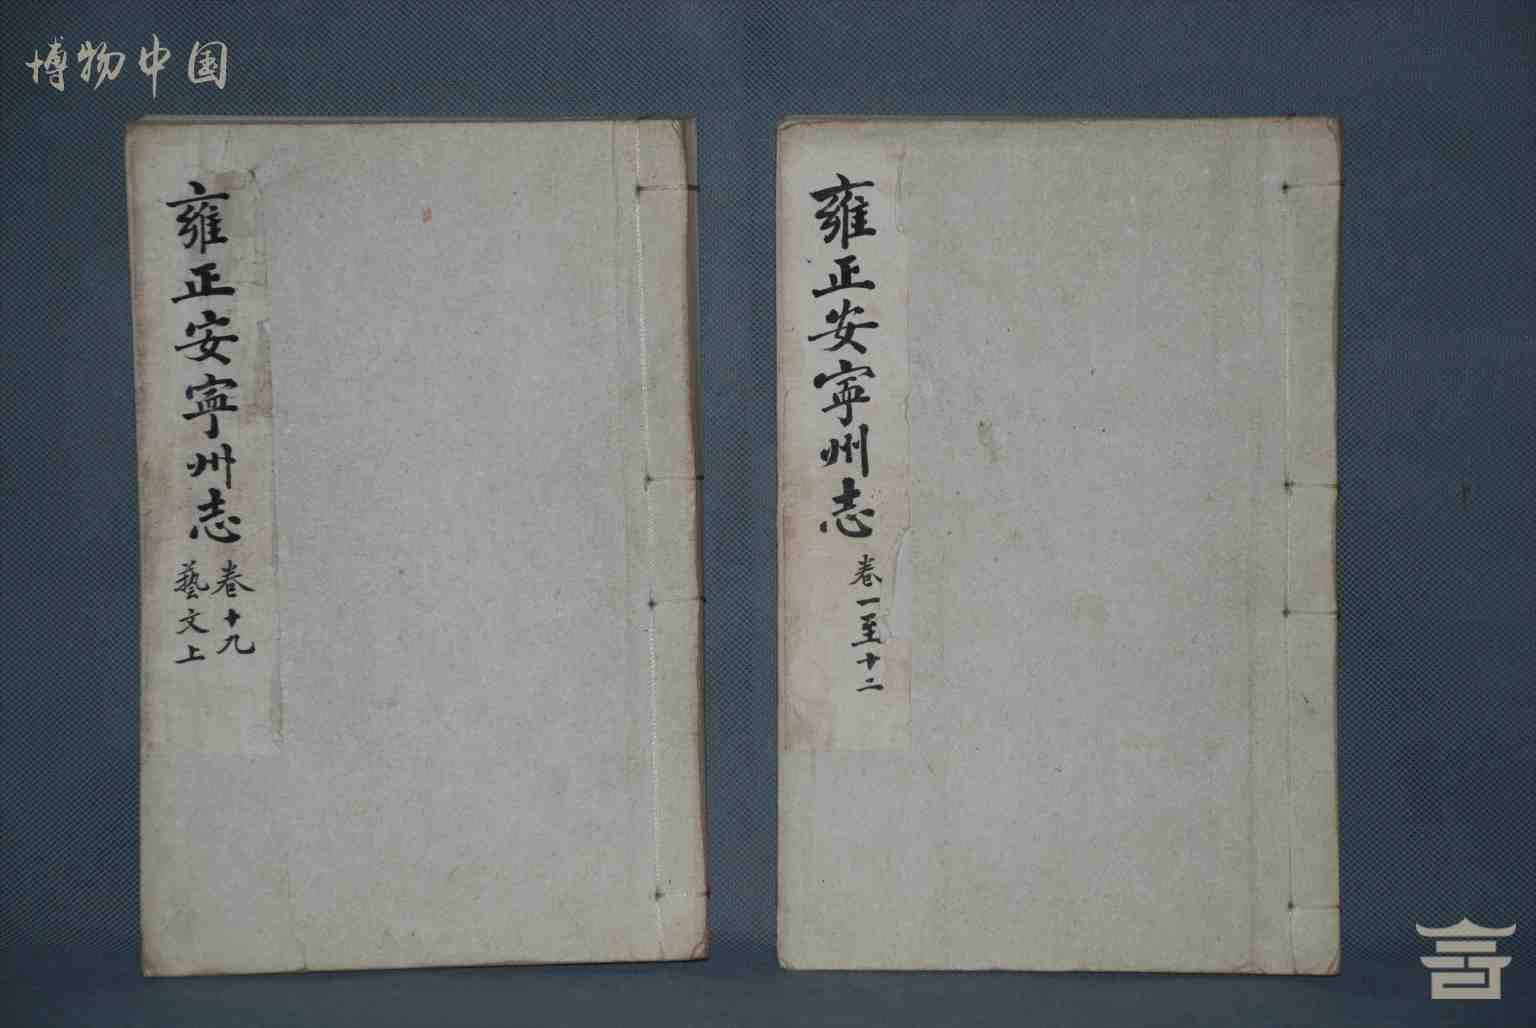 博物中国
雍正安寧州志
卷十九
藝文上
雍正安寧州志
卷一至十二